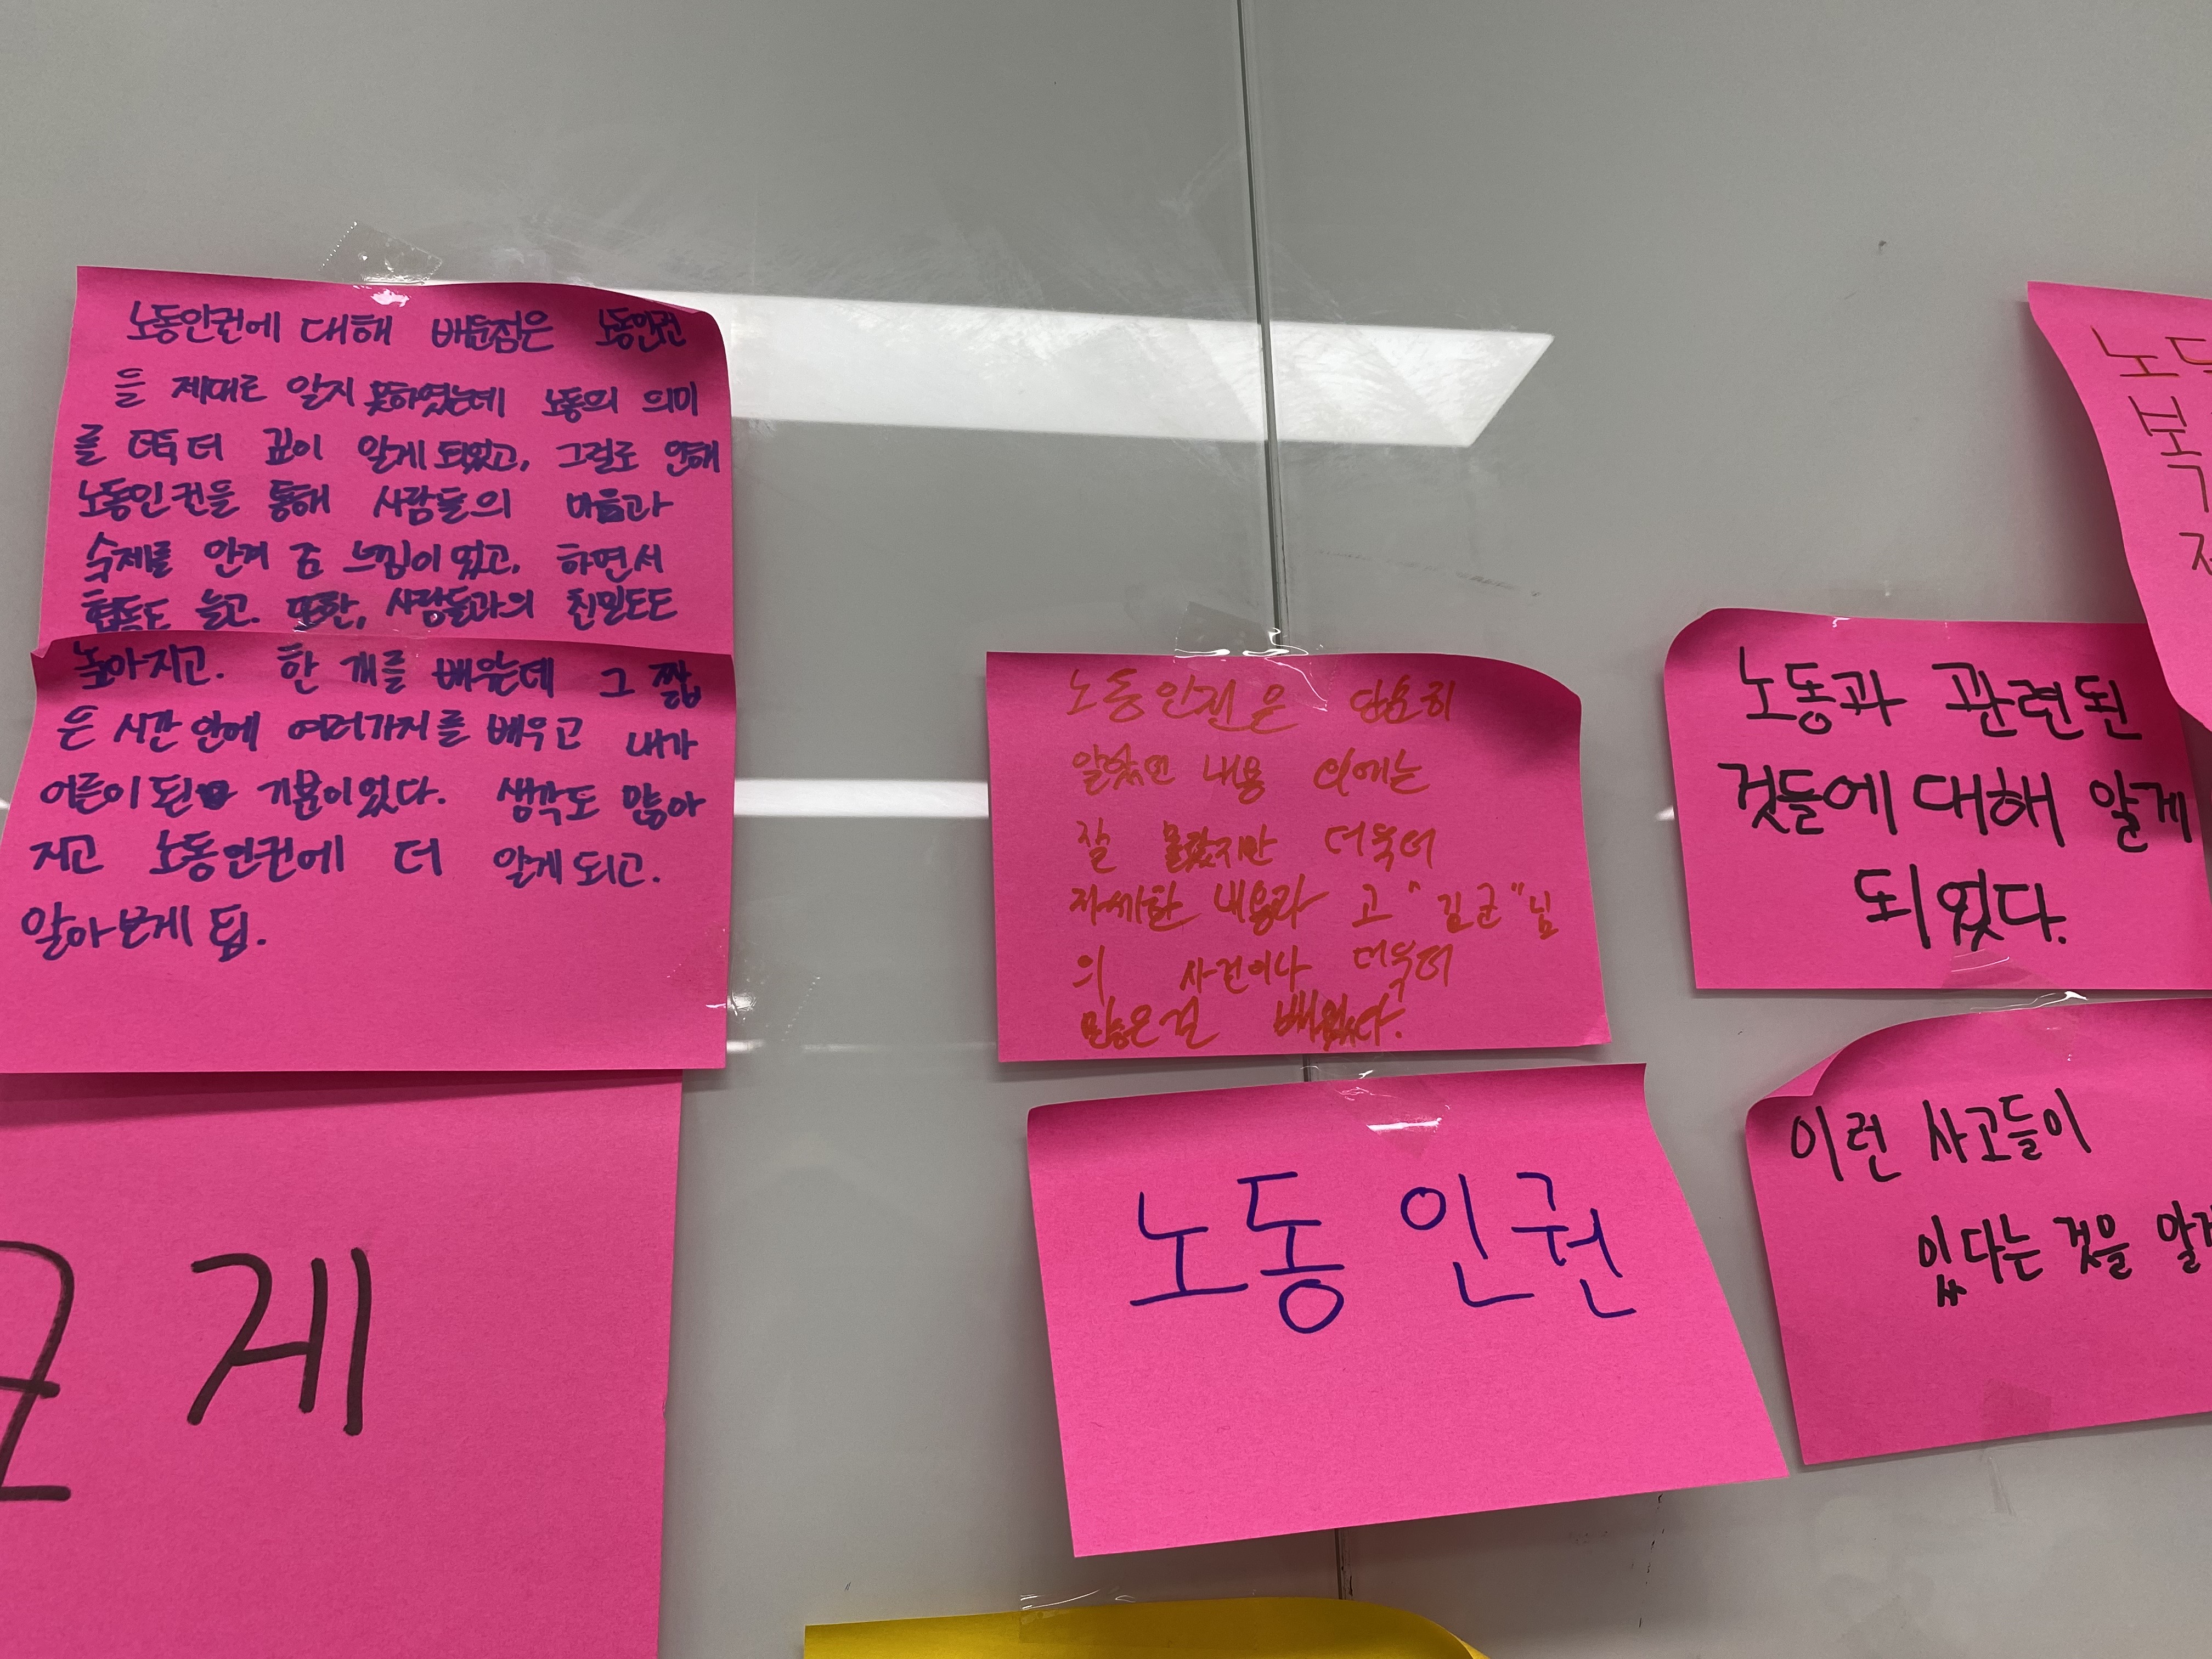 노동인권에 대해 배운점은 노동인권
을 제대로 알지 못하였는데 노동의 의미
를 더욱더 깊이 알게 되었고, 그걸로 인해
노동인권을 통해 사람들의 마음과
숙제를 안겨 준 느낌이 었고, 하면서
협동도 늘고. 또한, 사람들과의 친밀도도
높아지고. 한 개를 배웠는데 그 짧
은 시간 안에 여러가지를 배우고 내가
어른이 된 기분이었다. 생각도 많아
지고 노동인권에 더 알게 되고.
알아보게 됨.
게
노동인권은 단순히
알았던 내용 이에는
잘 몰랐지만 더욱더
자세한 내용과 고 "김군"님
의 사건이나 더욱더
많은걸 배웠다.
노동 인권
노동과 관련된
것들에 대해 알게
되었다.
이런 사고들이
있다는 것을 알게